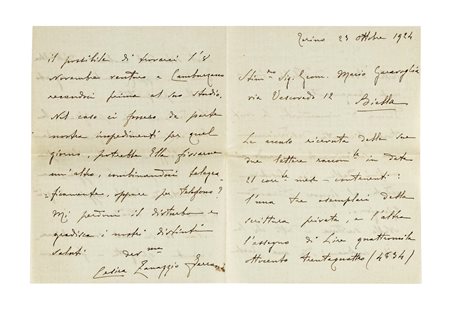 Torino 23 Ottobre 1924
Stim.mo Sig. Geom. Mario Garavoglia
via Vescovado 12
Biella
Le accuso ricevuta delle sue
due lettere raccom.te in data
21 corr.te mese - contenenti:
l'una tre esemplari della
scrittura privata, e l'altra
l'assegno di Lire quattromila
ottocento trentaquattro (4834)
il possibile di trovarci l'8
Novembre venturo a
recandoci prima al suo studio.
Nel caso ci fossero da parte
nostra impedimenti per quel
giorno, potrebbe Ella fissarne
un'altro, combinandosi telegra-
ficamente, oppure per telefono?
Mi perdoni il disturbo e
gradisca i nostri distinti
saluti
dev.ma
Cesira